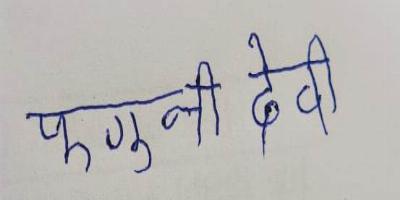 फगुनी देवी